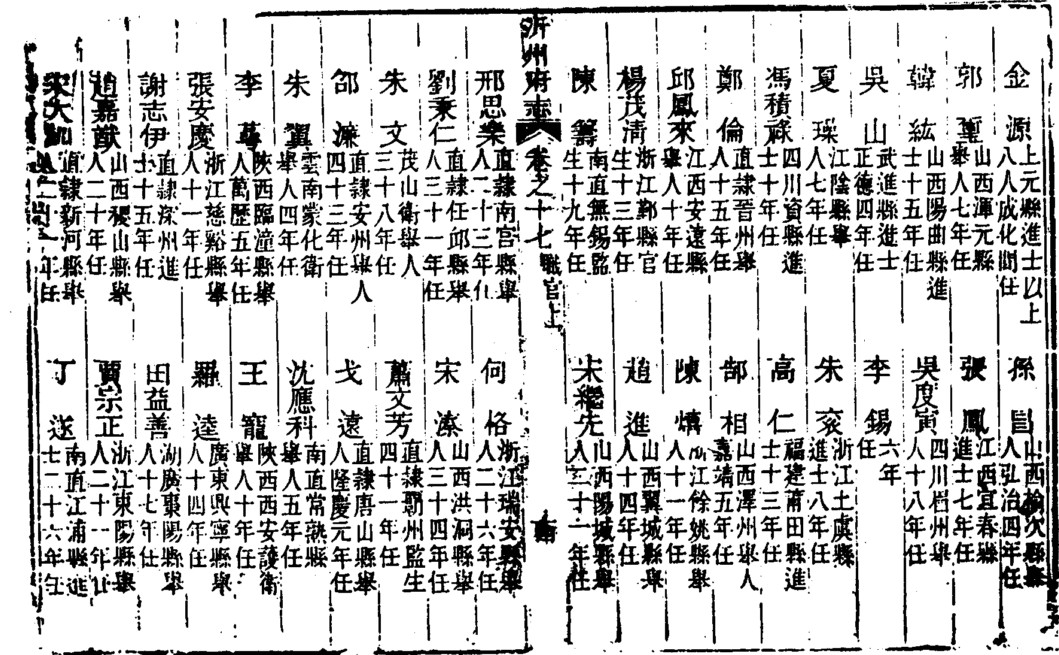 金源 上元縣進士以上
八人成化間任
孫昌 山西榆次縣舉
人弘治四年任
郭璽 山西渾元縣
舉人七年任
張鳳 江西宜春縣
進士七年任
韓紘 山西陽曲縣進
士十五年任
吳度寅 四川眉州舉
人十八年任
吳山 武進縣進士
正德四年任
李錫 六年
任
夏璨 江陰縣舉
人七年任
朱袞 浙江上虞縣
進士八年任
馮積祿 四川資縣進
士十年任
高仁 福建莆田縣進
士十三年任
鄭倫 直隸晉州舉
人十五年任
郜相 山西澤州舉人
嘉靖五年任
邱鳳來 江西安遠縣
舉人十年任
陳熺 浙江餘姚縣舉
人十一年任
楊茂清 浙江鄞縣官
生十三年任
趙進 山西翼城縣舉
人十四年任
陳籌 南直無錫監
生十九年任
宋繼先 山西陽城縣舉
人二十一年任
沂州府志 卷之十七 職官上
邢思樂 直隸南宮縣舉
人二十三年任
何格 浙江瑞安縣舉
人二十六年任
劉秉仁 直隸任邱縣舉
人三十一年任
宋溱 山西洪洞縣舉
人三十四年任
朱文 茂山衛舉人
三十八年任
蕭文芳 直隸霸州監生
四十一年任
邵濂 直隸安州舉人
四十三年任
戈遠 直隸唐山縣舉
人隆慶元年任
朱翼 雲南蒙化衛
舉人四年任
沈應科 南直常熟縣
舉人五年任
李萼 陝西臨潼縣舉
人萬歷五年任
王寵 陝西西安護衛
舉人十年任
張安慶 浙江慈谿縣舉
人十一年任
羅逵 廣東興寧縣舉
人十四年任
謝志伊 直隸深州進
士十五年任
田益善 湖廣棗陽縣舉
人十七年任
趙嘉猷 山西稷山縣舉
人二十年任
賈宗正 浙江東陽縣舉
人二十一年任
宋大 直隸新河縣舉
年任
丁遂 南直江浦縣進
士二十六年任